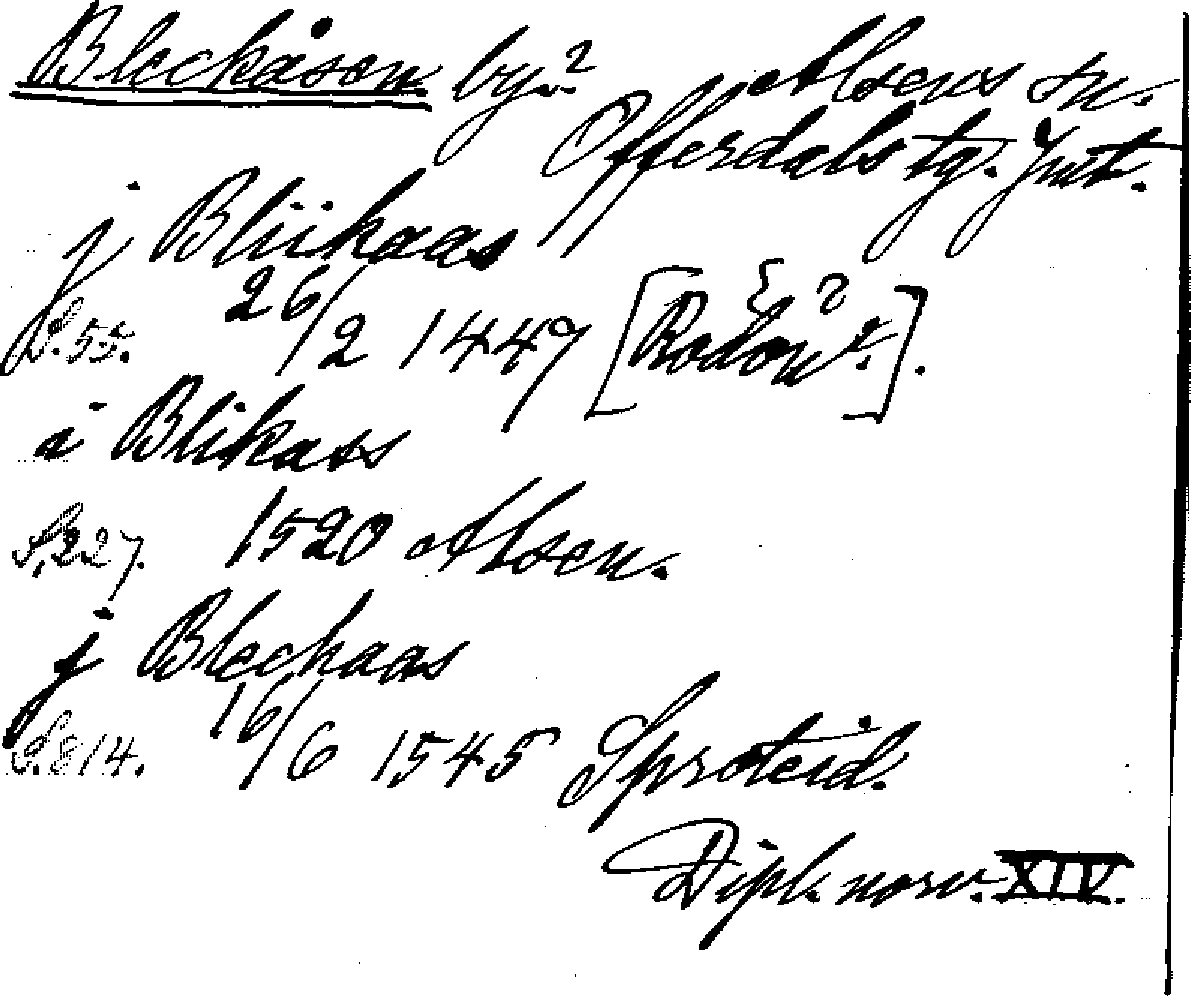 Bleckåsen by.² Alsens sn.
Offerdals tg. Jmt.
j Bliikaas
S. 55. 26/2 1447 [Rödön ?].
i Blikass
S. 227. 1520 Alsen.
j Bleckaas
S. 814. 16/6 1545 Sproteid.
Dipl. norv. XIV.